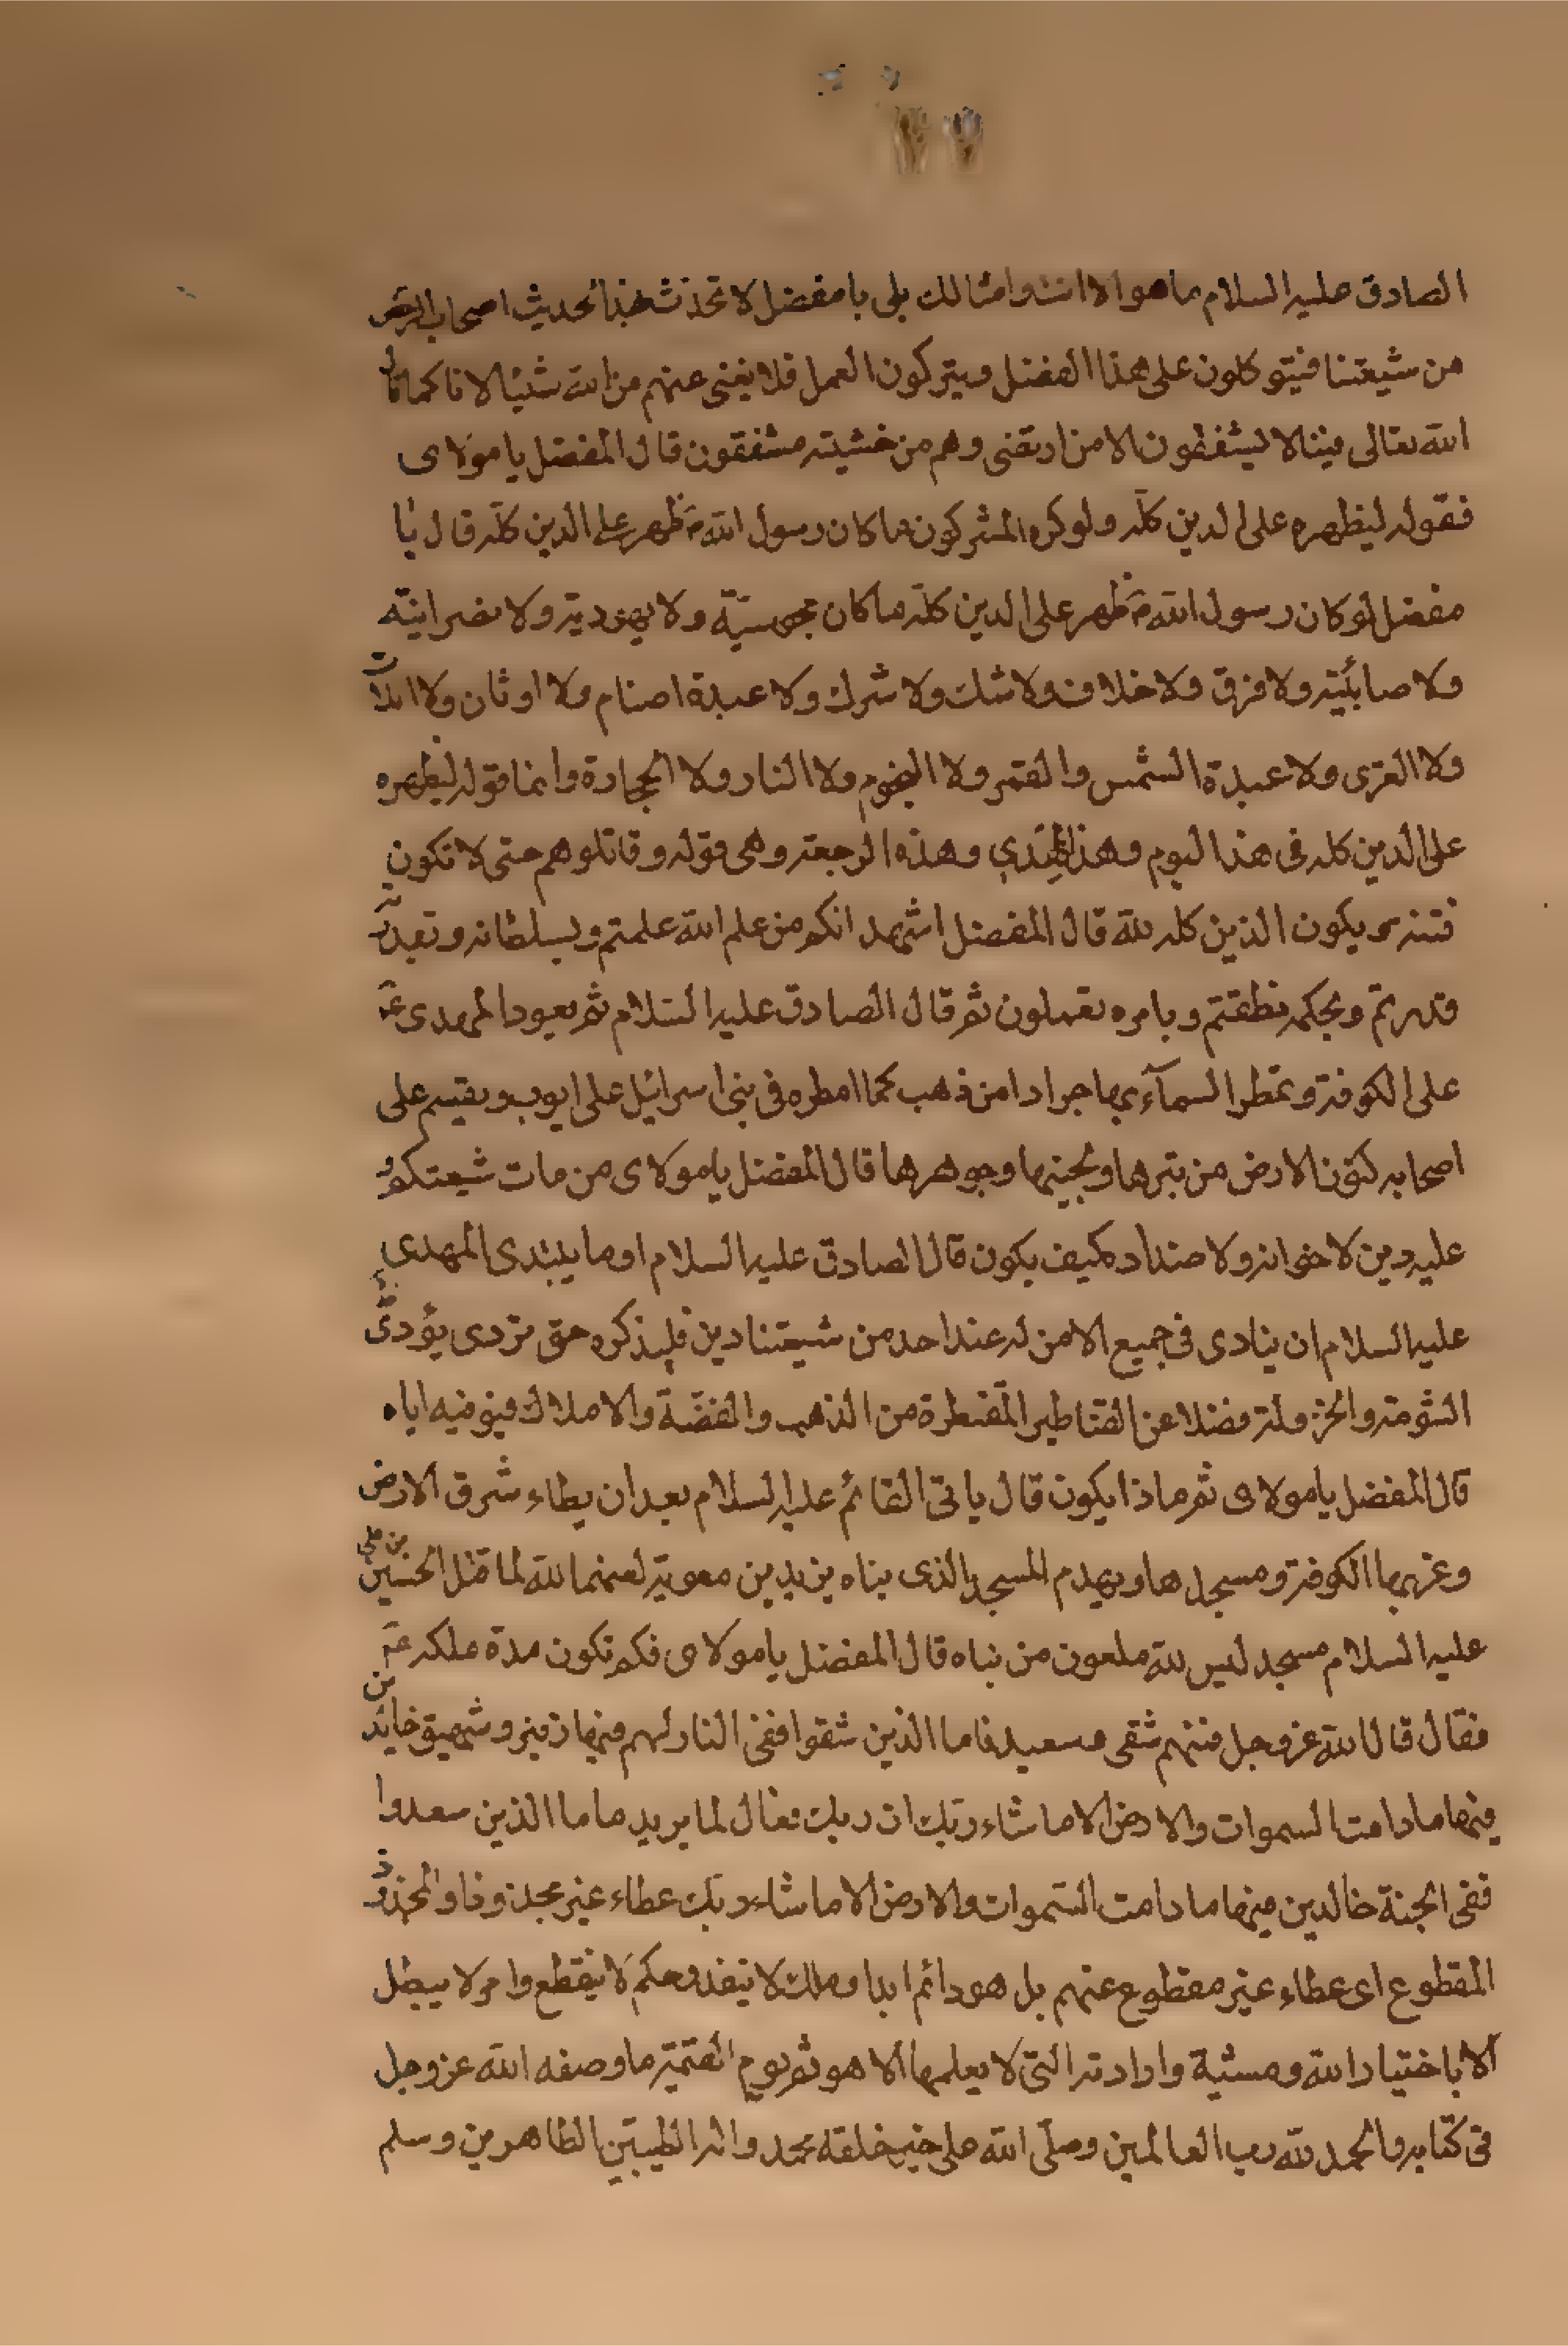 الصادق عليه السلام ما هو الا انت وامثالك بلى يا مفضل لا تحدث بهذا الحديث اصحاب الرخص
من شيعتنا فيتوكلون على هذا الفضل ويتركون العمل فلا يغنى عنهم من الله شيئا لانا كما قال
الله تعالى فينا لا يشفعون الا من ارتضى وهم من خشيته مشفقون قال المفضل يا مولاى
فقوله ليظهره على الدين كله ولو كره المشركون ما كان رسول الله ص ظهر على الدين كله قال يا
مفضل لو كان رسول الله ص ظهر على الدين كله ما كان مجوسيّة ولا يهودية ولا نصرانيته
ولا صابئية ولا فرق ولا خلاف ولا شك ولا شرك ولا عبدة اصنام ولا اوثان ولا اللات
ولا العزى ولا عبدة الشمس والقمر ولا النجوم ولا النار ولا الحجارة وانما قوله ليظهره
على الدين كله فى هذا اليوم وهذا المهدي وهذه الرجعة وهى قوله وقاتلوهم حتى لا تكون
فتنة ويكون الدين كله لله قال المفضل اشهد انكم من علم الله علمتم وبسلطانه وبقدرته
قدرتم وبحكمه نطقتم وبامره تعملون ثم قال الصادق عليه السلام ثم يعود المهدى ع
على الكوفة وتمطر السمآء بها جرادا من ذهب كما امطره فى بنى اسرائيل على ايوب ويقسم على
اصحابه كنوز الارض من تبرها ولجينها وجوهرها قال المفضل يا مولاى من مات شيعتكم و
عليه دين لاخوانه ولاضداده كيف يكون قال الصادق عليه السلام او ما يبتدى المهدى
عليه السلام ان ينادى فى جميع الا من له عند احد من شيعتنا دين فليذكره حتى يؤدى
الثومة والخردلة فضلا عن القناطير المقنطرة من الذهب والفضة والاملاك فيوفيه اياه
قال المفضل يا مولاى ثم ما ذا يكون قال ياتى القائم عليه السلام بعد ان يطاء شرق الارض
وغربها الكوفة ومسجدها ويهدم المسجد الذى بناه يزيد بن معوية لعنهما الله لما قتل الحسين بن على
عليه السلام مسجد ليس لله ملعون من بناه قال المفضل يا مولاى فكم تكون مدة ملكه ع
فقال قال الله عز وجل فمنهم شقى وسعيد فاما الذين شقوا ففى النار لهم فيها زفير وشهيق خالدين
فيها ما دامت السموات والارض الا ما شاء ربك ان ربك فعال لما يريد واما الذين سعدوا
ففى الجنة خالدين فيها ما دامت السموات والارض الا ما شاء ربك عطاء غير مجذوذ والمجذوذ
المقطوع اى عطاء غير مقطوع عنهم بل هو دائم ابدا وملك لا ينفد وحكم لا ينقطع وامر لا يبطل
الا باختيار الله ومشية وارادته التى لا يعلمها الا هو ثم يوم القيمة وما وصفه الله عز وجل
فى كتابه والحمد لله رب العالمين وصلّى الله على خير خلقه محمد واله الطيبين الطاهرين وسلم